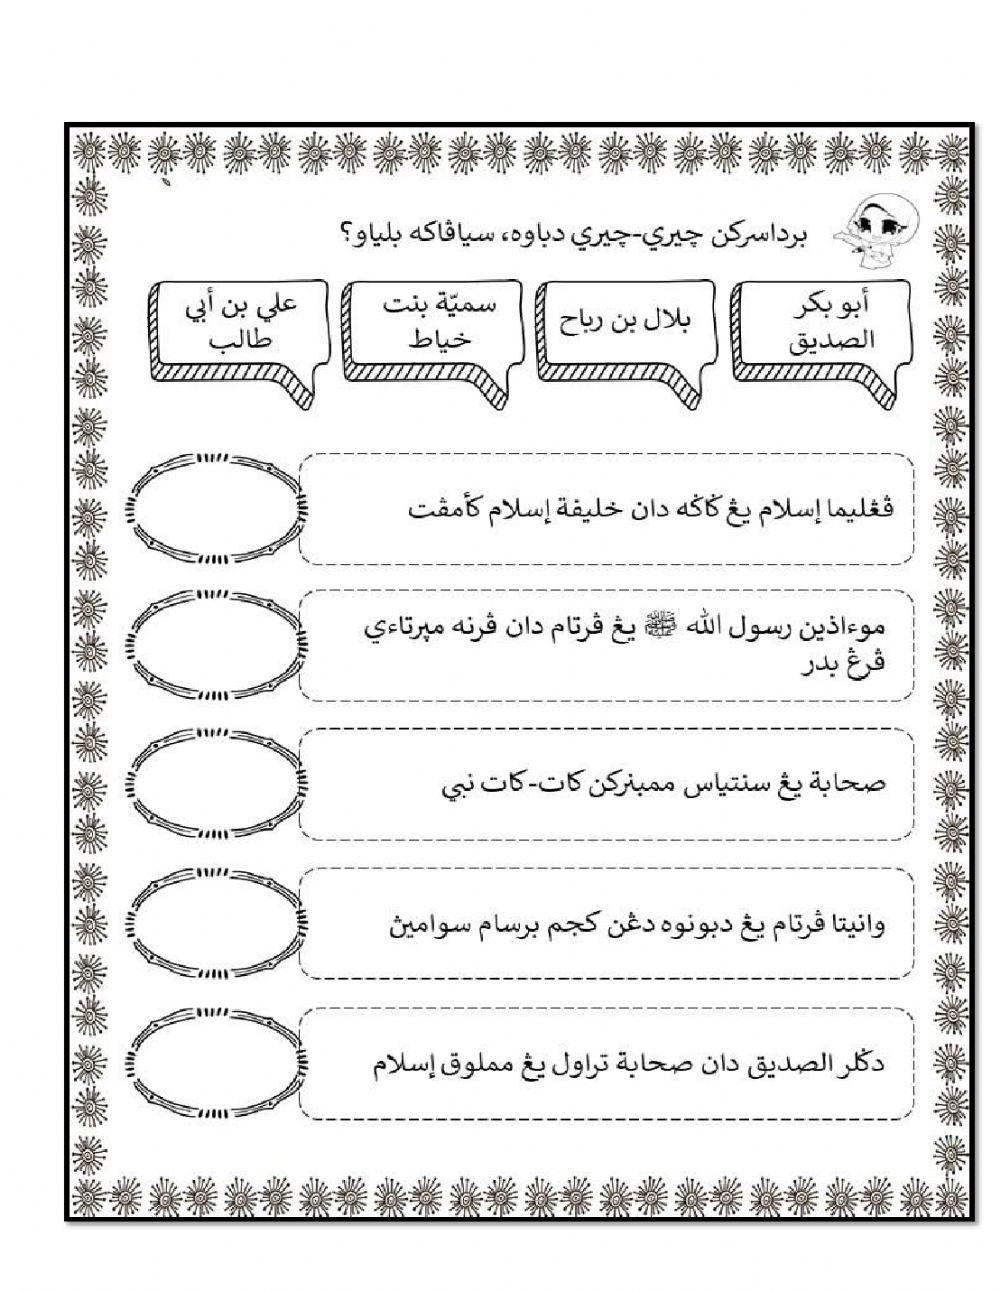 برداسركن چيري-چيري دباوه، سياڤاكه بلياو؟
أبو بكر
الصديق
بلال بن رباح
سميّة بنت
خياط
علي بن أبي
طالب
ڤڠليما إسلام يڠ ݢاݢه دان خليفة إسلام كأمڤت
موءاذين رسول الله ﷺ يڠ ڤرتام دان ڤرنه مڽرتاءي
ڤرڠ بدر
صحابة يڠ سنتياس ممبنركن كات-كات نبي
وانيتا ڤرتام يڠ دبونوه دڠن كجم برسام سوامين
دݢلر الصديق دان صحابة تراول يڠ مملوق إسلام